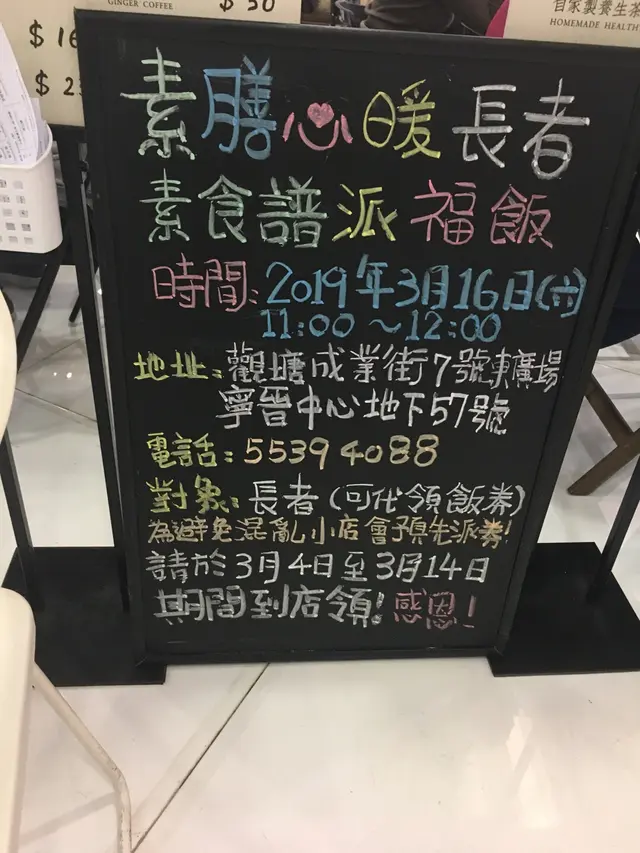 GINGER COFFEE
$ 50
自家製養生茶
HOMEMADE HEALTH
$ 16
素膳心暖長者
素食譜派福飯
時間:2019年3月16日(六)
11:00～12:00
地址:觀塘成業街7號東廣場
寧晉中心地下57號
電話:5539 4088
對象:長者(可代領飯券)
為避免混亂小店會預先派券!
請於3月4日至3月14日
期間到店領!感恩!